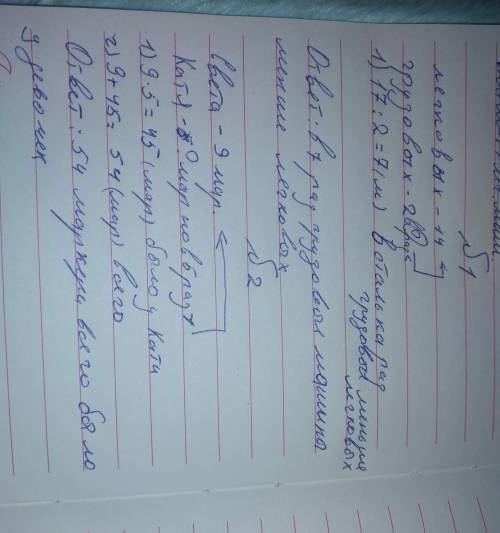 №1
легковых - 14
грузовых - 2 в раз
1) 17:2=7(м) в сталька раз
грузовой меньше
легковых
Ответ: в 7 раз грузовой машины
меньше легковых
№2
Света - 9 мар.
Катя - ? мар новв раз
1) 9·5=45(мар) было у Кати
2) 9+45=54(мар) всего
Ответ: 54 маркера всего было
у девочек